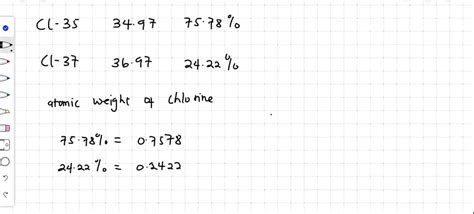 Cl-35 34.97 75.78%
Cl-37 36.97 24.22%
atomic weight of Chlorine
75.78% = 0.7578
24.22% = 0.2422